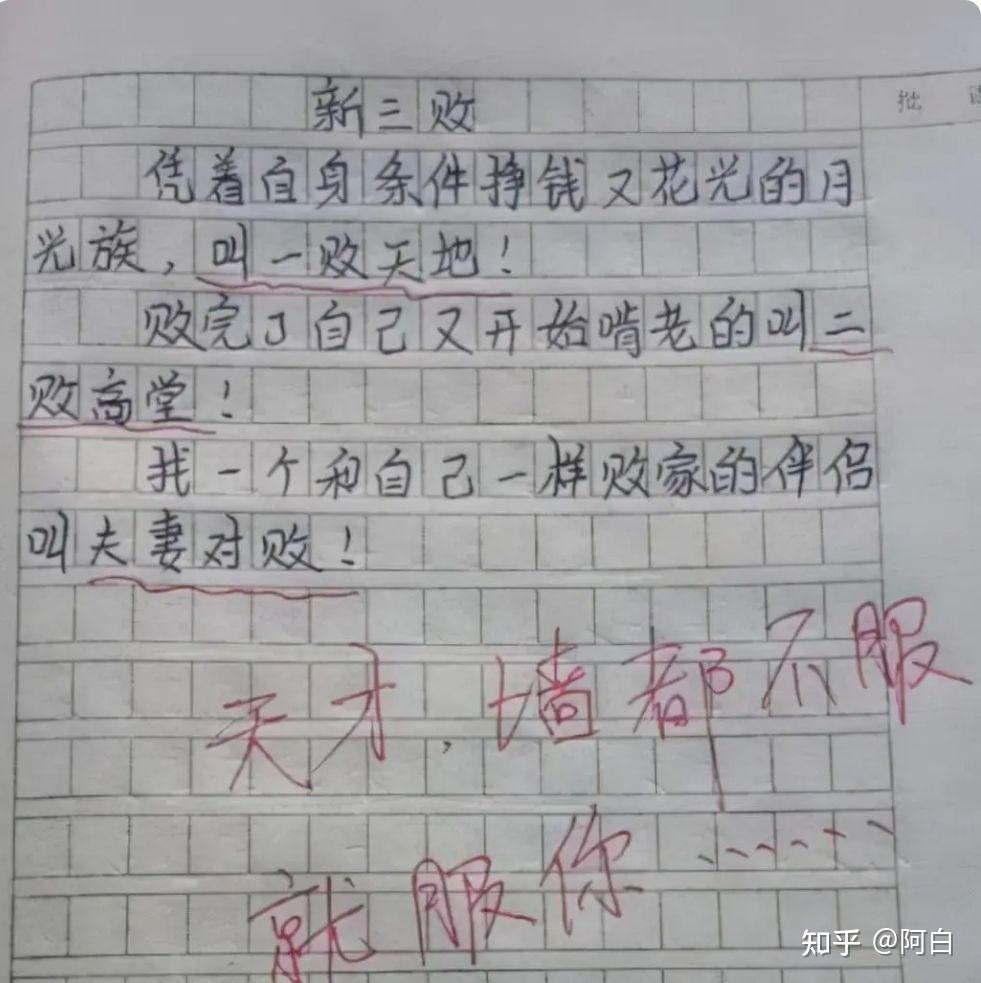 新三败
批
凭着自身条件挣钱又花光的月
光族，叫一败天地！
败完了自己又开始啃老的叫二
败高堂！
找一个和自己一样败家的伴侣
叫夫妻对败！
天才，墙都不服
就服你……
知乎 @阿白